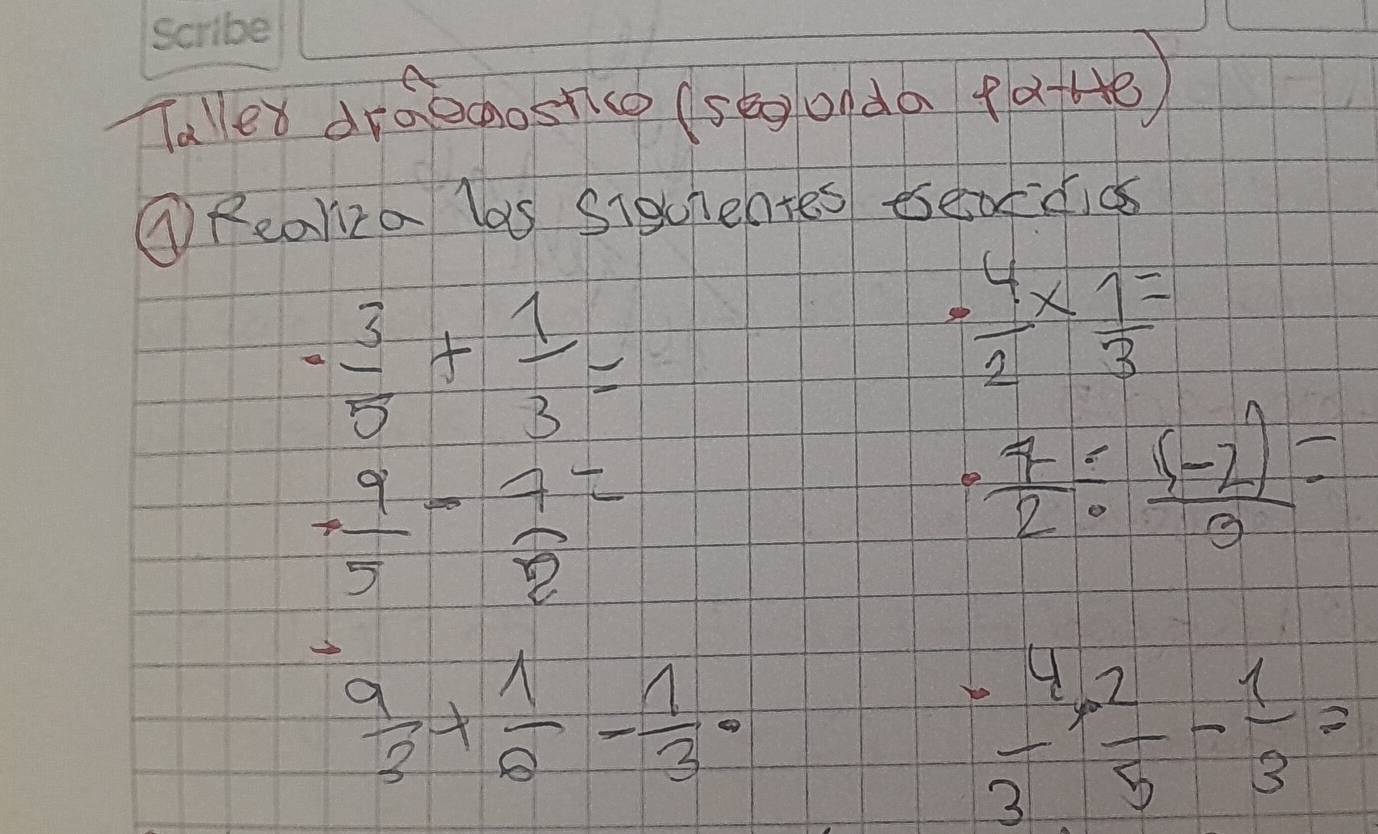 Scribe
Taller diagnostico (segunda parte)
① Realiza los siguientes esercicios
· 3/5 + 1/3 =
· 4/2 × 1/3 =
· 9/5 - 7/2 =
· 7/2 ÷ (-2)/9 =
· 9/2 + 1/8 - 1/3 ·
· 4/3 × 2/5 - 1/3 =